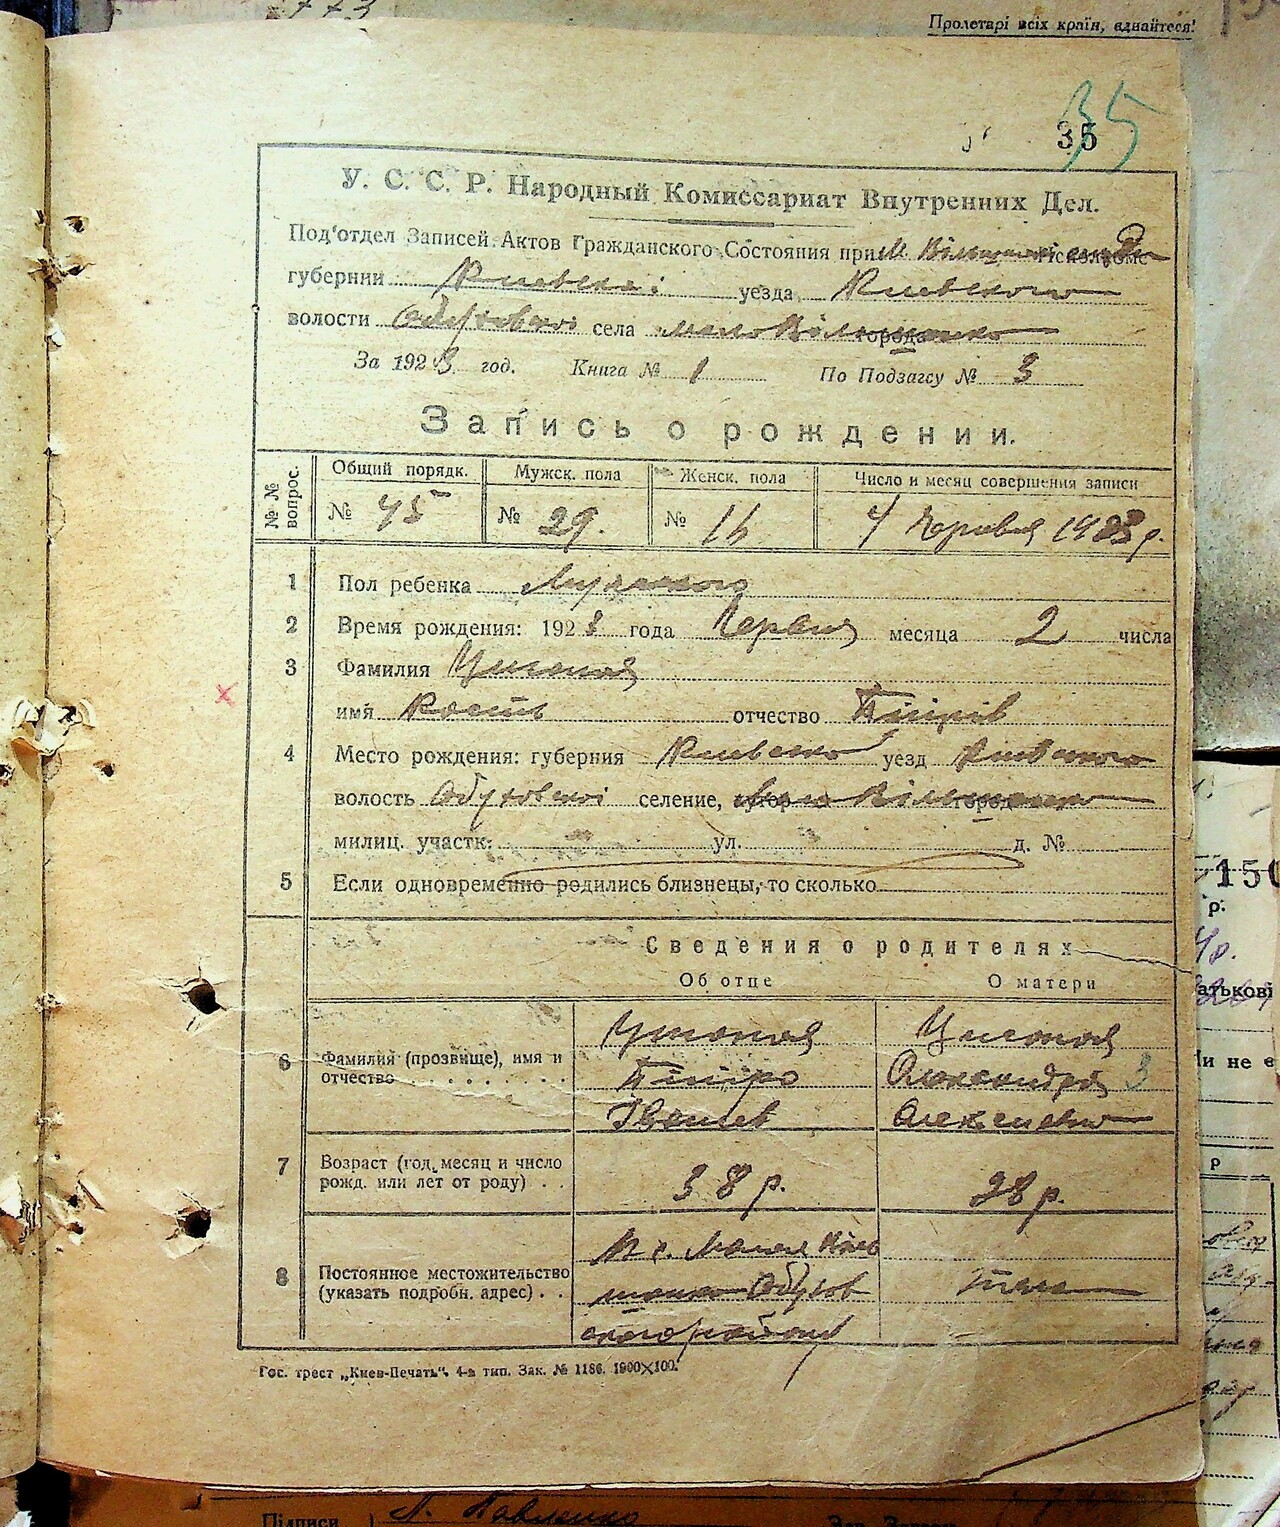 Пролетарі всіх країн, єднайтеся!
35
35
У. С. С. Р. Народный Комиссариат Внутренних Дел.
Под'отдел Записей Актов Гражданского Состояния при М Вільшанскі
губернии Киевскої уезда Киевского
волости Обуховскої села мало Вільшанко города
За 1923 год. Книга № 1 По Подзагсу № 3
Запись о рождении.
№ № вопрос. Общий порядк. Мужск. пола Женск. пола Число и месяц совершения записи
№ 45 № 29. № 16 4 Червня 1923 р.
1 Пол ребенка Мужского
2 Время рождения: 1923 года Червня месяца 2 числа
3 Фамилия
имя Кость отчество Петрів
4 Место рождения: губерния Киевско уезд Киевского
волость Обуховскої селение, Мало Вільшанко
милиц. участк: ул. д. №
5 Если одновременно родились близнецы, то сколько
Сведения о родителях
Об отце О матери
6 Фамилия (прозвище), имя и отчество
Петро Олександра 3
Іванов Олексієвна
7 Возраст (год, месяц и число рожд. или лет от роду) . . 38 р. 28 р.
8 Постоянное местожительство (указать подробн. адрес) . .
В с. Малая Віль
шанка Обухов тоже
ского району
Гос. трест „Киев-Печать“. 4-я тип. Зак. № 1186. 1900×100.
150
р.
атькові
и не є
р
Підписи П. Павленко